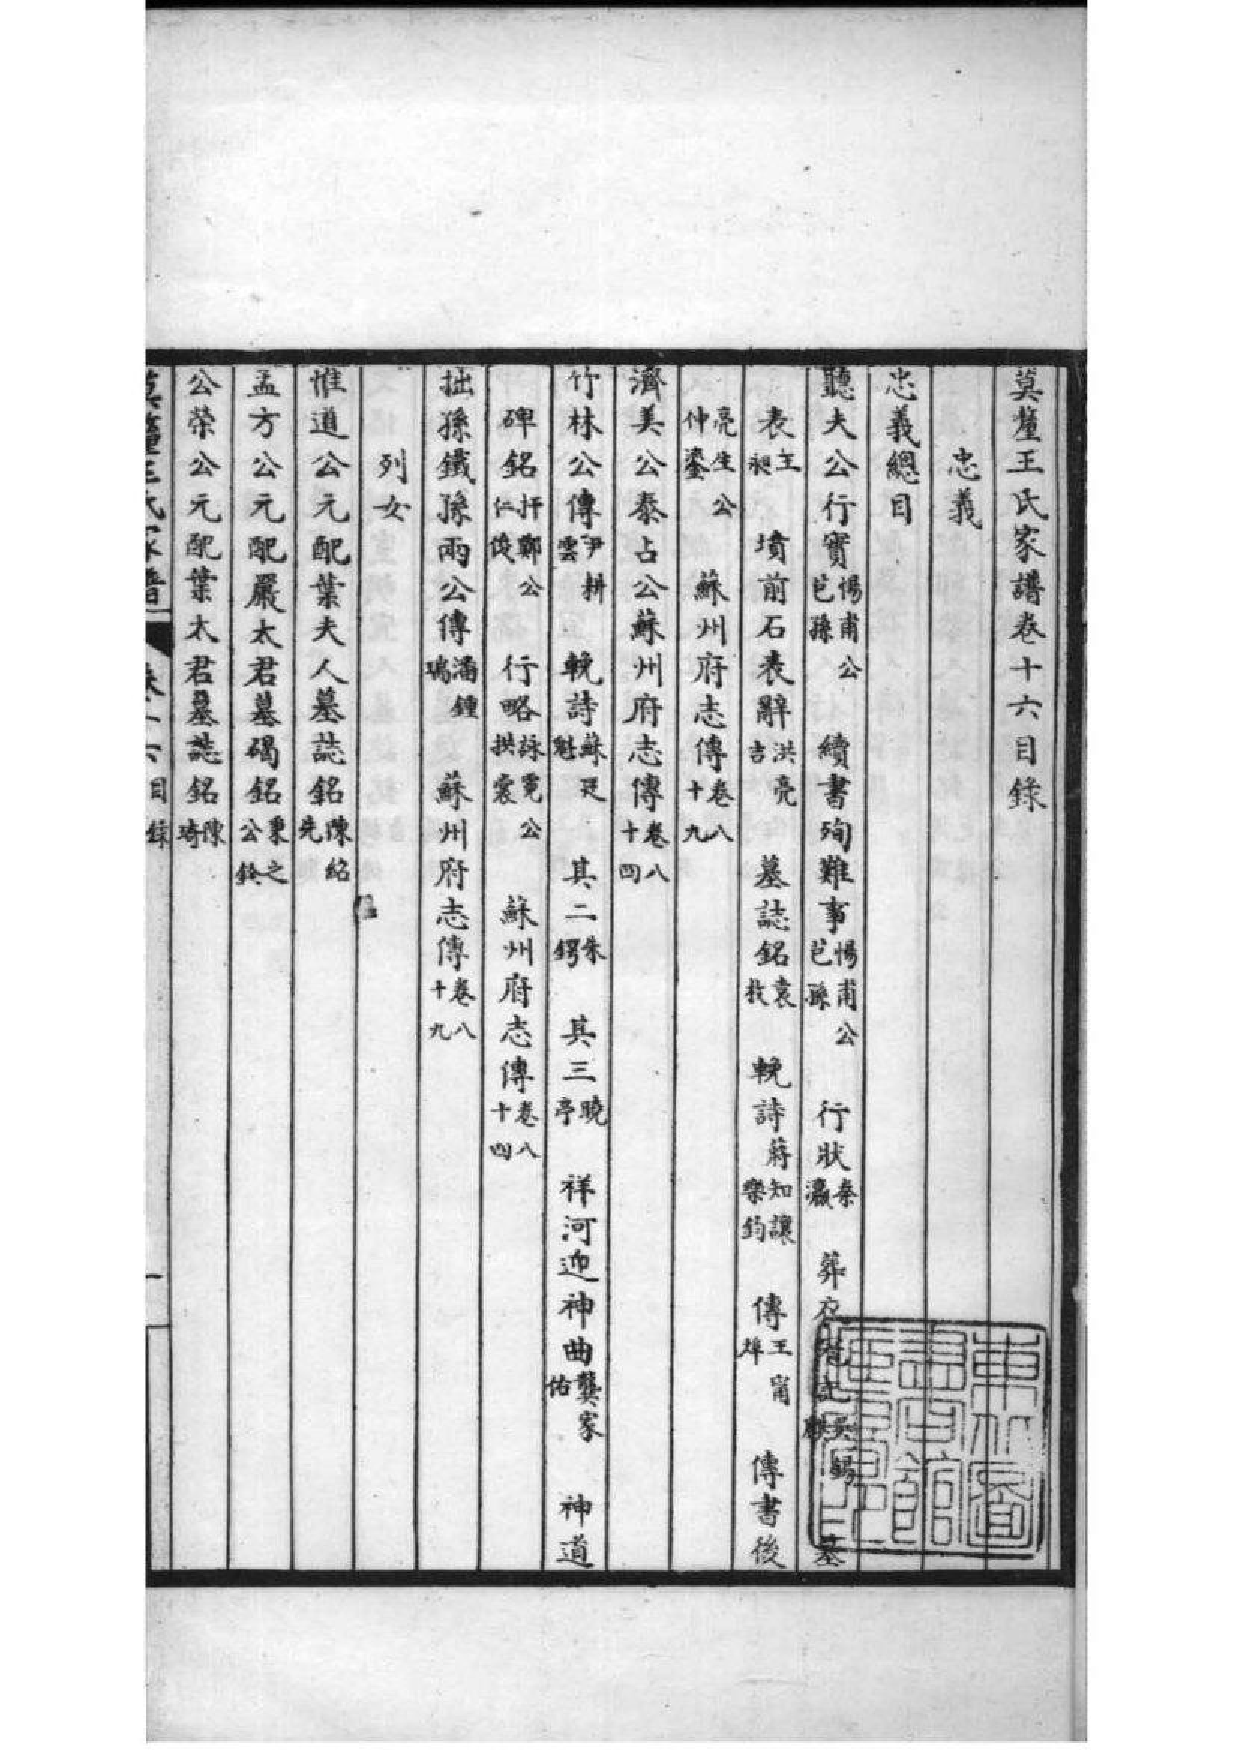 莫釐王氏家譜卷十六目錄
忠義
忠義總目
聽夫公行實惕甫公芑孫 續書殉難事惕甫公芑孫 行狀秦瀛 葬夜記吳錫麒 墓
表王昶 墳前石表辭洪亮吉 墓誌銘袁枚 輓詩蔣知讓樂鈞 傳王甯埠 傳書後
亮生公仲鎏 蘇州府志傳卷八十九
濟美公泰占公蘇州府志傳卷八十四
竹林公傳尹耕雲 輓詩蘇廷魁 其二朱鍔 其三曉亭 祥河迎神曲龔家佑 神道
碑銘扞鄭公仁俊 行略詠霓公拱裳 蘇州府志傳卷八十四
拙孫鐵孫兩公傳潘鍾瑞 蘇州府志傳卷八十九
列女
惟道公元配葉夫人墓誌銘陳紹先
孟方公元配嚴太君墓碣銘秉之公銓
公榮公元配葉太君墓誌銘陳琦
莫釐王氏家譜 卷十六目錄 一